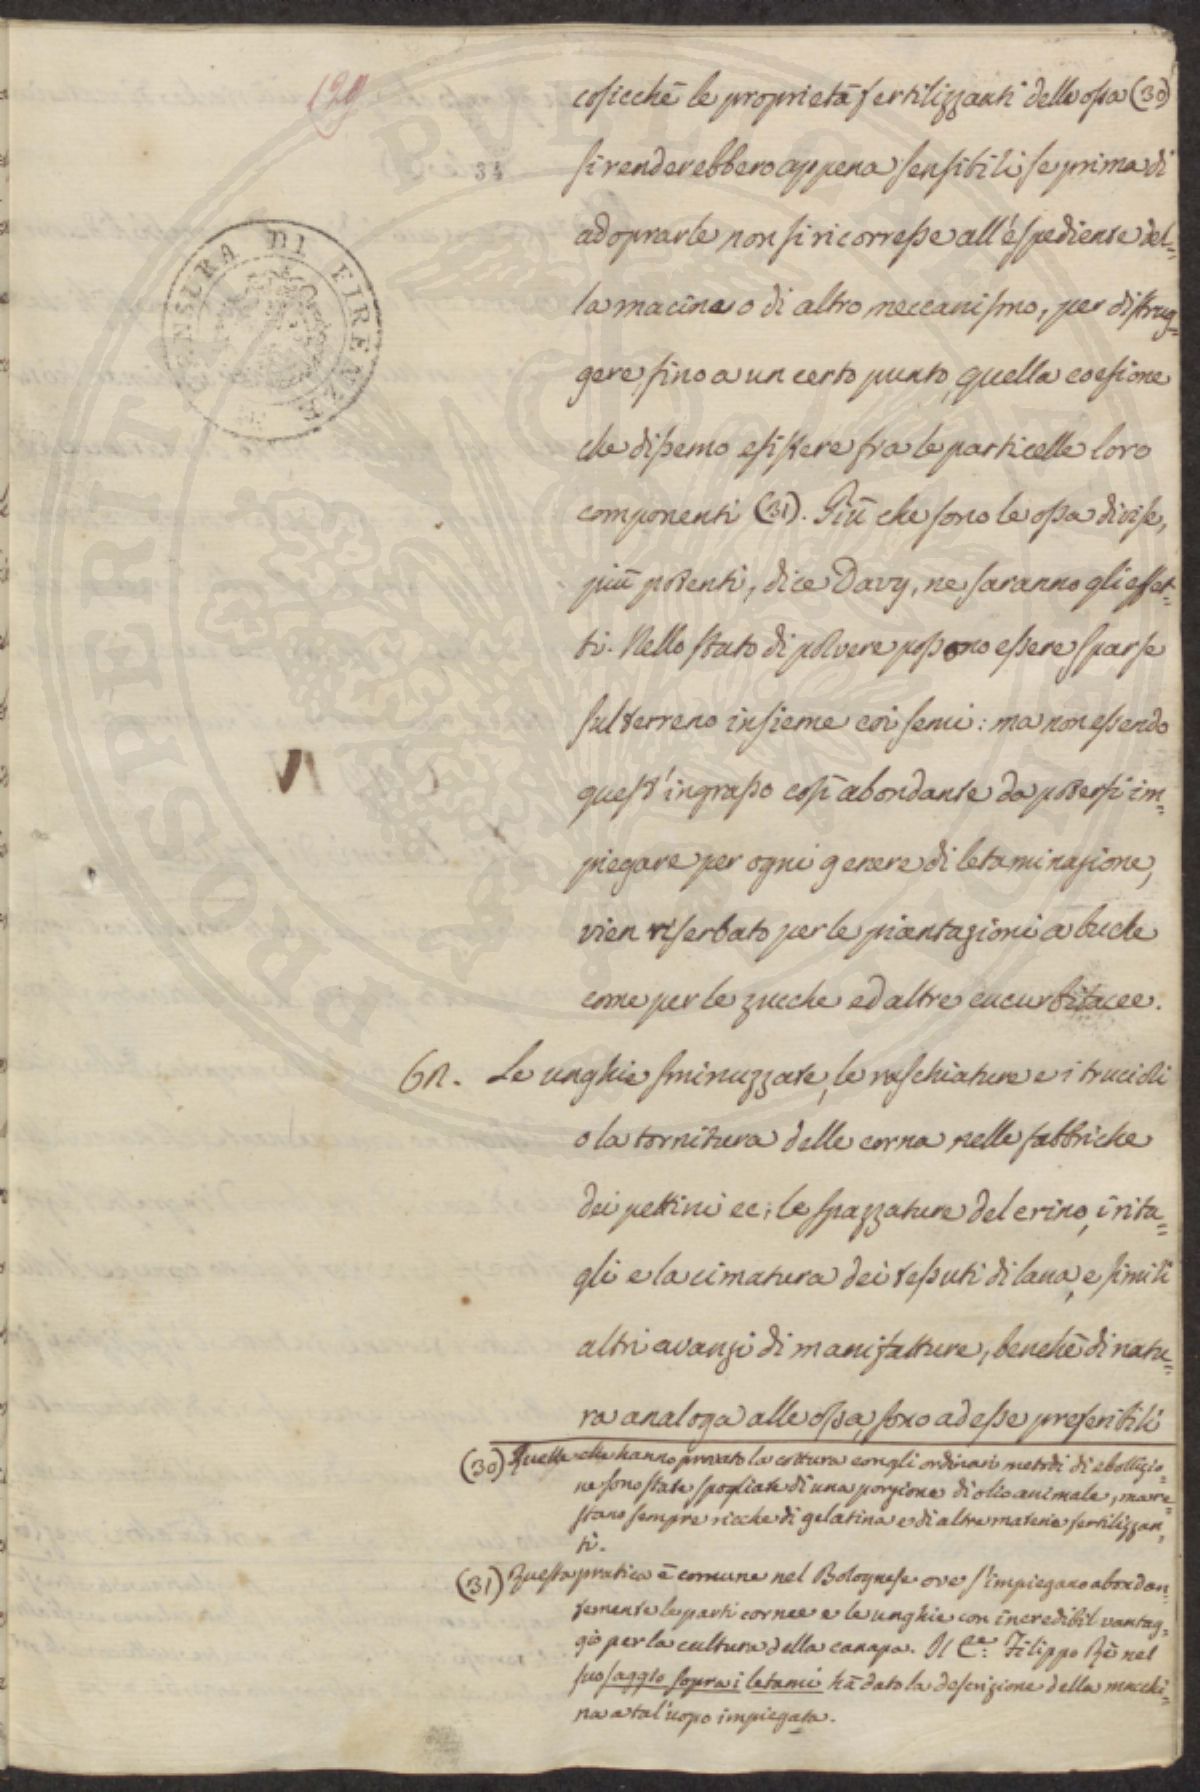 129
34
CENSURA DI FIRENZE
cosicchè le proprietà fertilizzanti delle ossa (30)
si renderebbero appena sensibili se prima di
adoprarle non si ricorresse all'espediente del=
la macine o di altro meccanismo, per distrug=
gere fino a un certo punto, quella coesione
che dissemo esistere fra le particelle loro
componenti (31). Più che sono le ossa divise,
più potenti, dice Davy, ne saranno gli effet=
ti. Nello stato di polvere possono essere sparse
sul terreno insieme coi semi: ma non essendo
quest'ingrasso così abondante da potersi im=
piegare per ogni genere di letaminazione,
vien riserbato per le piantazioni a buche
come per le zucche ed altre cucurbitacee.
62. Le unghie sminuzzate, le raschiature e i trucioli
o la tornitura delle corna nelle fabbriche
dei pettini ec; le spazzature del crino, i rita=
gli e la cimatura dei tessuti di lana, e simili
altri avanzi di manifatture, benchè di natu=
ra analoga alle ossa, sono ad esse preferibili
(30) Quelle che hanno provato la cottura con gli ordinari metodi di ebollizio=
ne sono state spogliate di una porzione di olio animale, ma re=
stano sempre ricche di gelatina e di altre materie fertilizzan=
ti.
(31) Questa pratica è comune nel Bolognese ove s'impiegano abondan=
temente le parti cornee e le unghie con incredibil vantag=
gio per la cultura della canapa. Il Ce: Filippo Rè nel
suo saggio sopra i letami hà dato la descrizione della macchi=
na a tal'uopo impiegata.